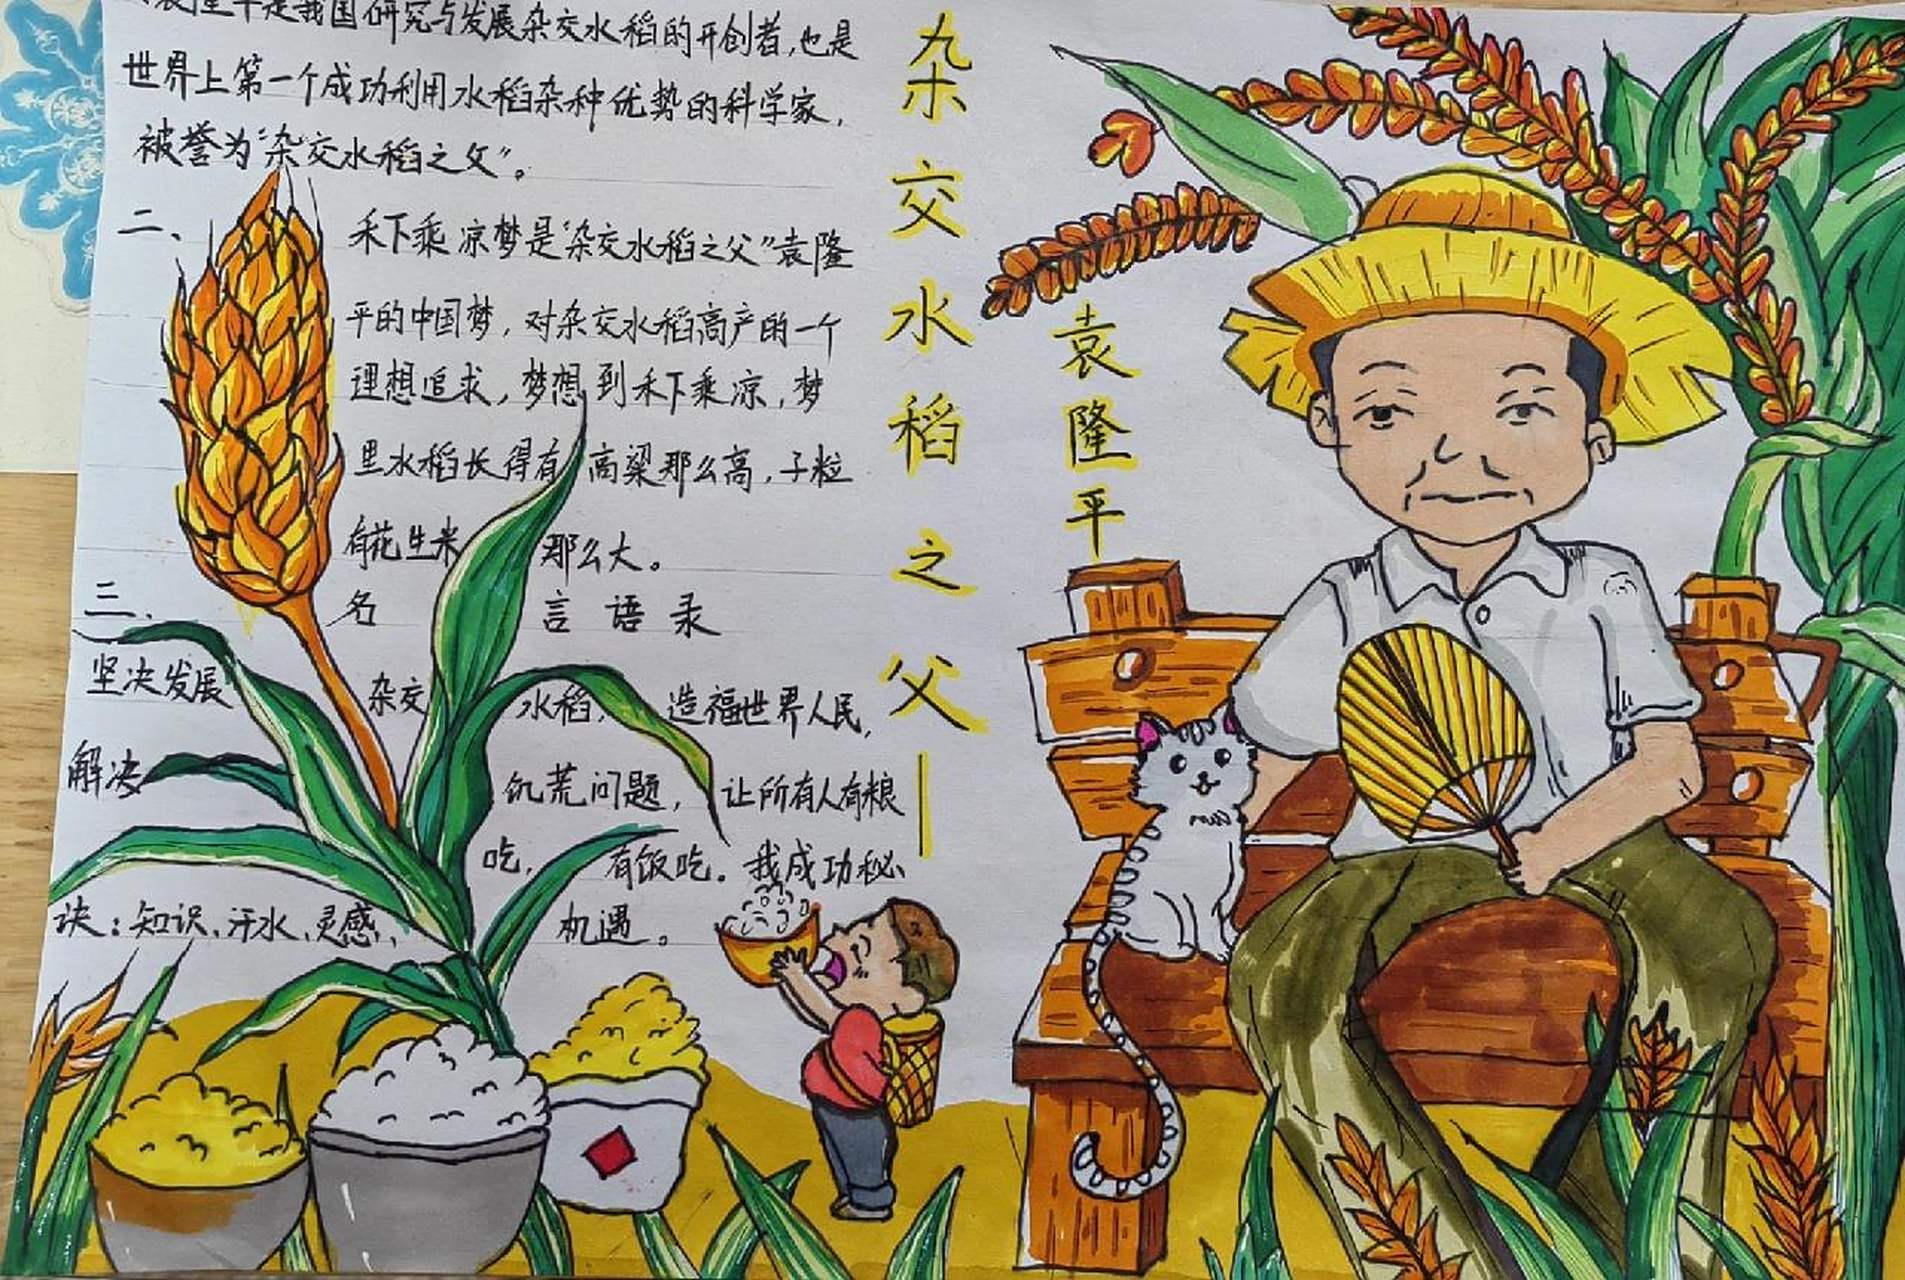 袁隆平是我国研究与发展杂交水稻的开创者,也是
世界上第一个成功利用水稻杂种优势的科学家,
被誉为“杂交水稻之父”。
二、
禾下乘凉梦是“杂交水稻之父”袁隆
平的中国梦,对杂交水稻高产的一个
理想追求,梦想到禾下乘凉,梦
里水稻长得有高粱那么高,子粒
有花生米那么大。
三、名言语录
坚决发展杂交水稻,造福世界人民,
解决饥荒问题,让所有人有粮
吃,有饭吃。我成功秘
诀:知识、汗水、灵感、机遇。
杂交水稻之父—
袁隆平